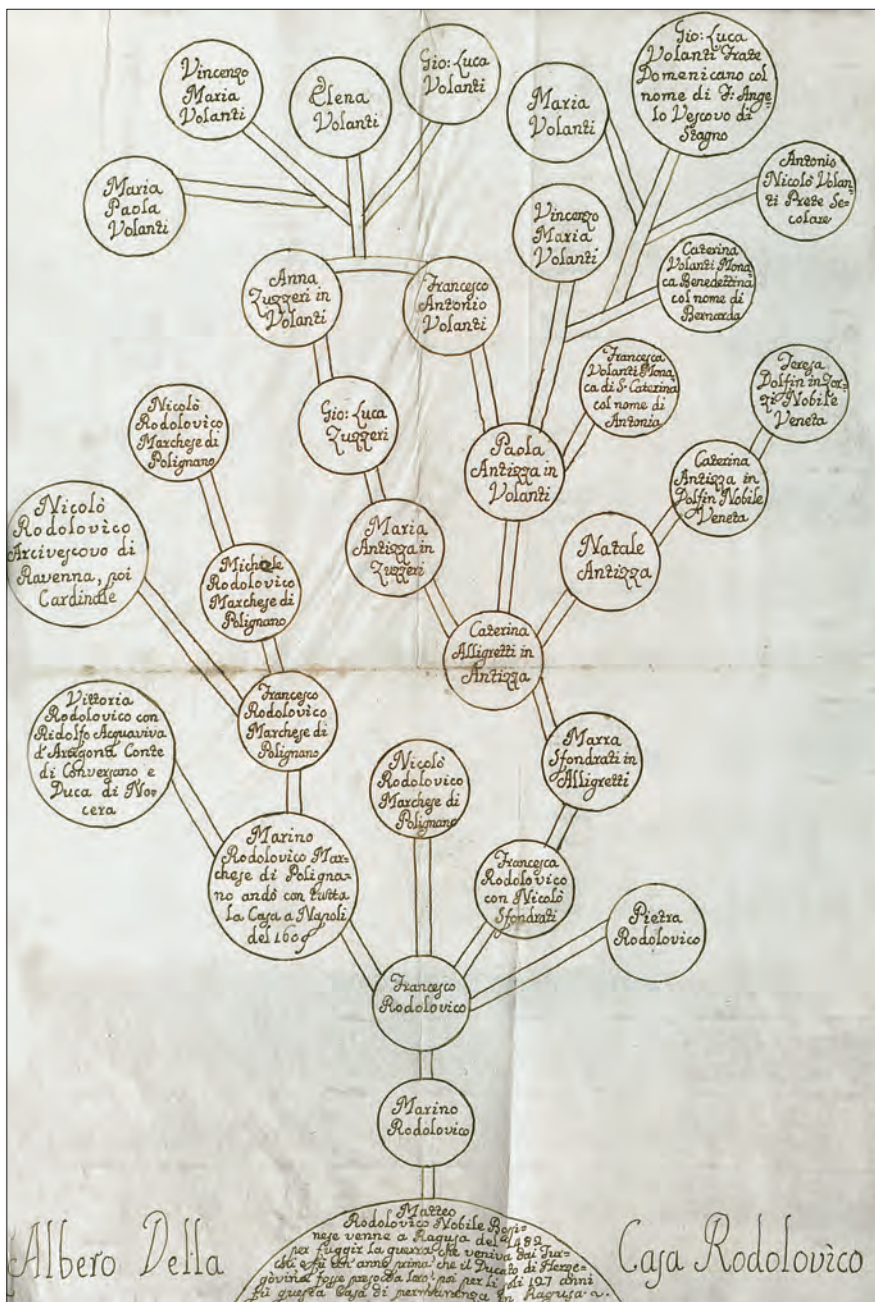 Vincenzo
Maria
Volanti
Elena
Volanti
Gio: Luca
Volanti
Maria
Volanti
Gio: Luca
Volanti Frate
Domenicano col
nome di F: Ange-
lo Vescovo di
Stagno
Maria
Paola
Volanti
Vincenzo
Maria
Volanti
Antonio
Nicolò Volan-
ti Prete Se-
colare
Anna
Zuzzeri in
Volanti
Francesco
Antonio
Volanti
Caterina
Volanti Mona-
ca Benedettina
col nome di
Bernarda
Nicolò
Rodolovico
Marchese di
Polignano
Gio: Luca
Zuzzeri
Paola
Antizza in
Volanti
Francesca
Volanti Mona-
ca di S. Caterina
col nome di
Antonia
Teresa
Dolfin in Zor-
zi Nobile
Veneta
Nicolò
Rodolovico
Arcivescovo di
Ravenna, poi
Cardinale
Michele
Rodolovico
Marchese di
Polignano
Maria
Antizza in
Zuzzeri
Natale
Antizza
Caterina
Antizza in
Dolfin Nobile
Veneta
Caterina
Alligretti in
Antizza
Vittoria
Rodolovico con
Ridolfo Acquaviva
d'Aragona Conte
di Conversano e
Duca di Nor-
cera
Francesco
Rodolovico
Marchese di
Polignano
Nicolò
Rodolovico
Marchese di
Polignano
Marra
Sfondrati in
Alligretti
Marino
Rodolovico Mar-
chese di Poligna-
no andò con tutta
la Casa a Napoli
del 1609
Francesca
Rodolovico
con Nicolò
Sfondrati
Pietra
Rodolovico
Francesco
Rodolovico
Marino
Rodolovico
Matteo
Rodolovico Nobile Bosi-
nese venne a Ragusa del 1482
per fuggir la guerra che veniva dai Tur-
chi e fù un anno prima che il Ducato di Herze-
govina fosse poi per li di 127 anni
fù questa Casa di permanenza in Ragusa
Albero Della Casa Rodolovico